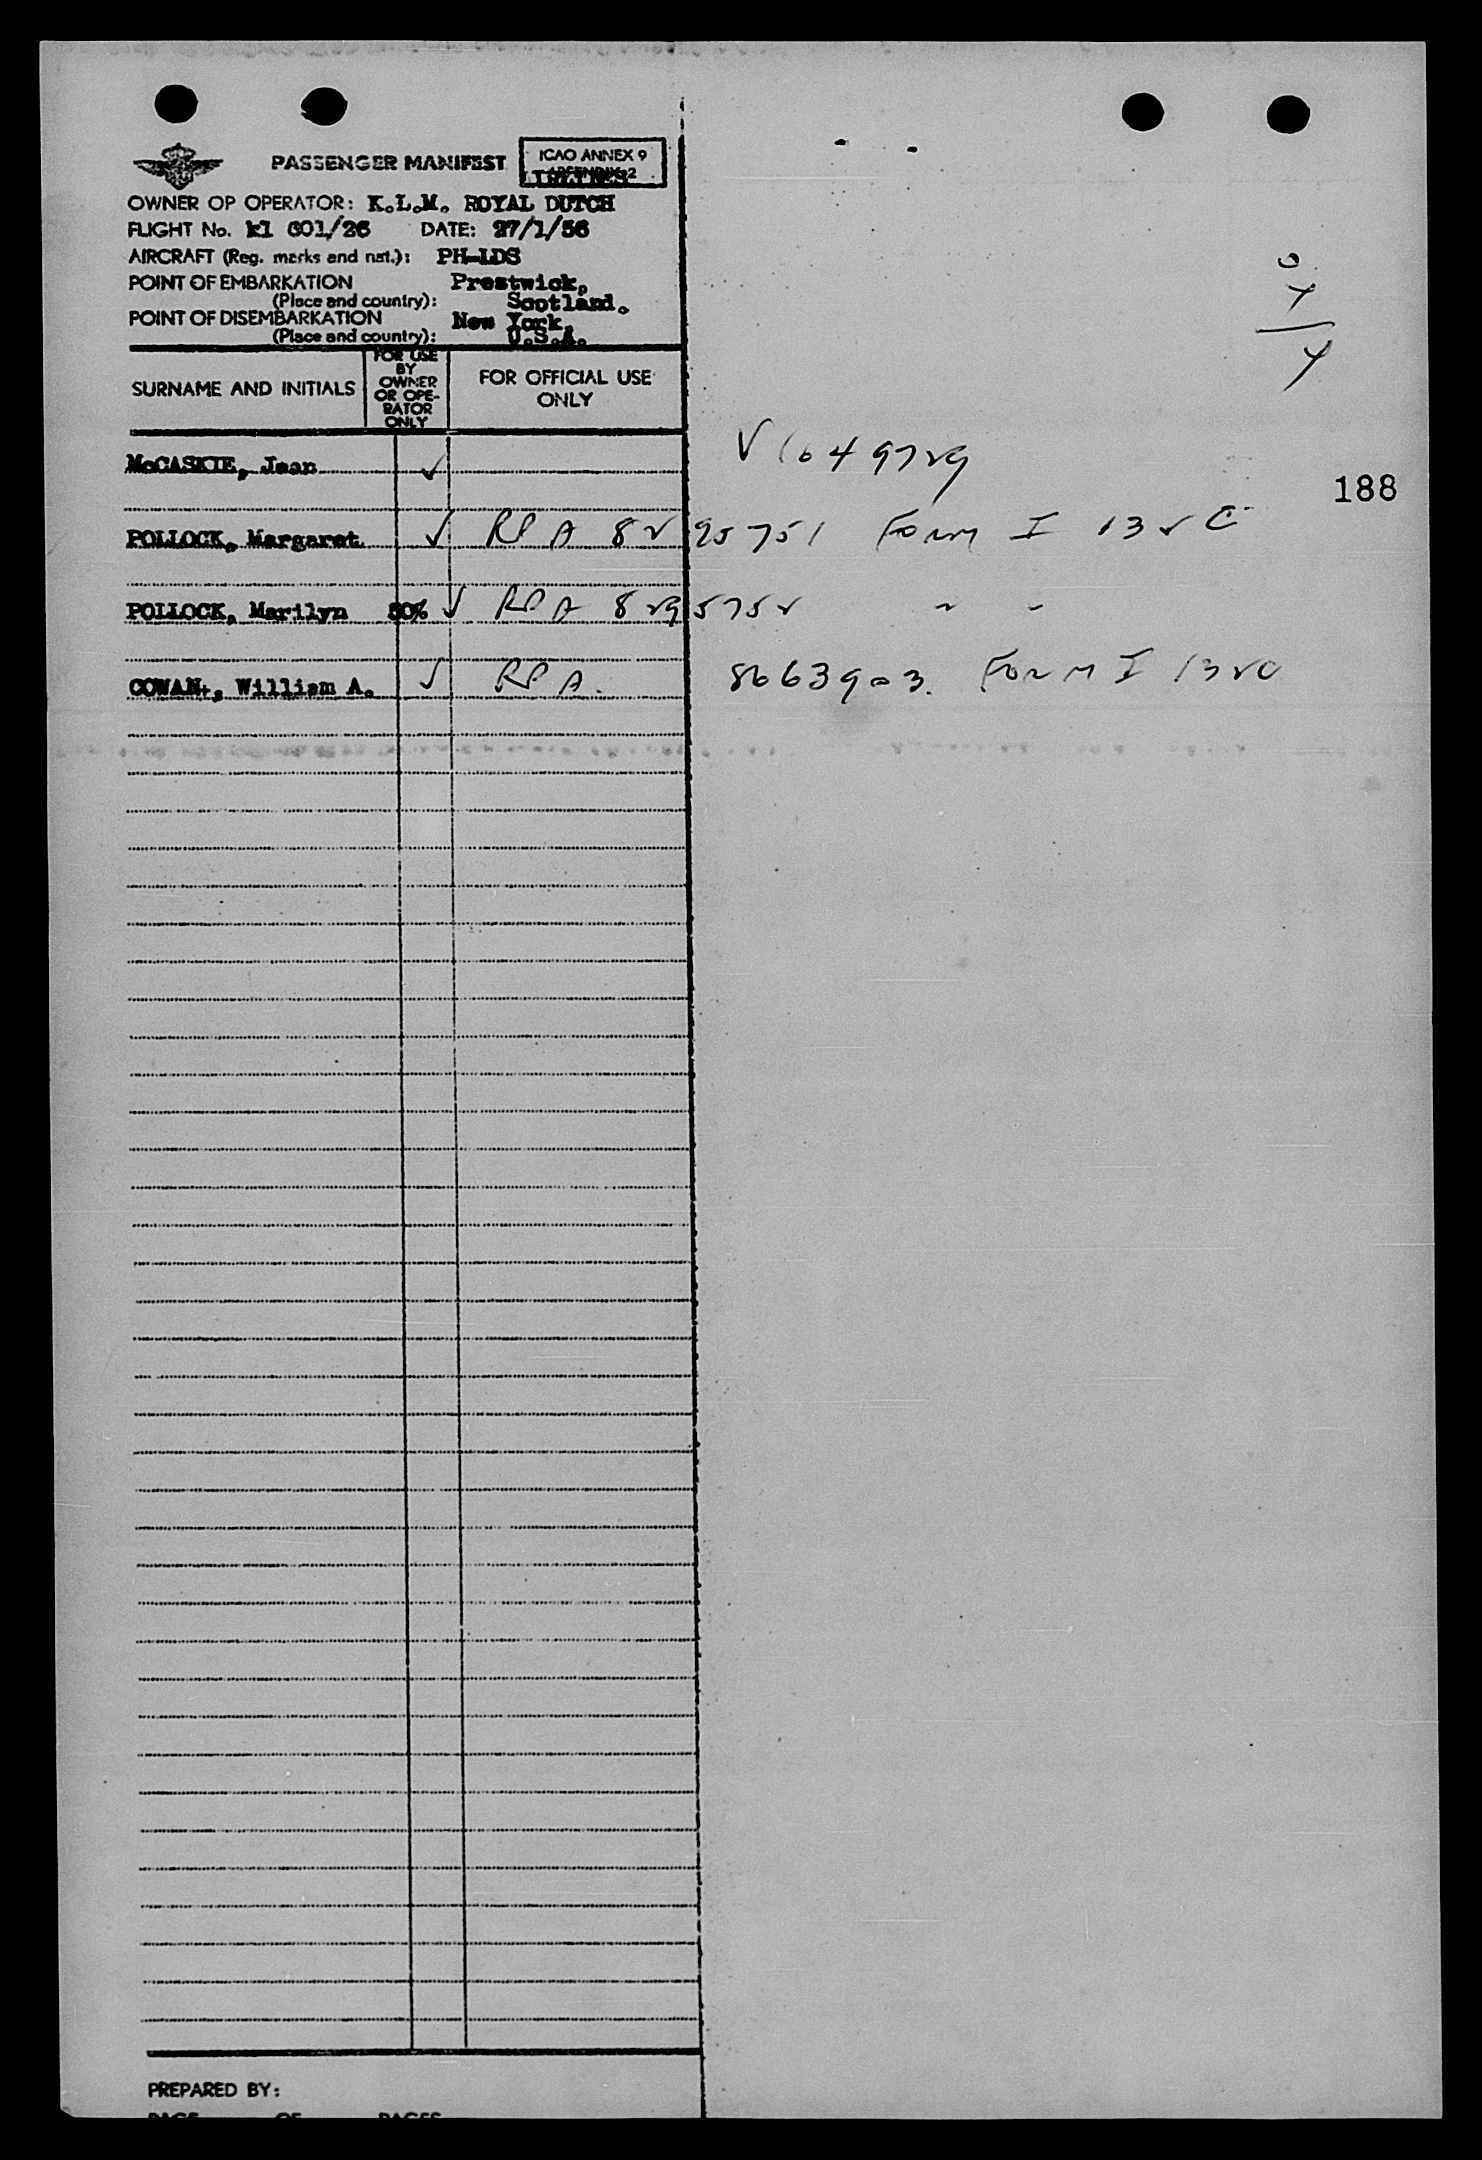 PASSENGER MANIFEST
ICAO ANNEX 9
APPENDIX 2
AIRLINES
OWNER OP OPERATOR: K.L.M. ROYAL DUTCH
FLIGHT No. kl 601/26 DATE: 27/1/56
AIRCRAFT (Reg. marks and nat.): PH-LDS
POINT OF EMBARKATION Prestwick,
(Place and country): Scotland.
POINT OF DISEMBARKATION New York,
(Place and country): U.S.A.
SURNAME AND INITIALS
FOR USE
BY
OWNER
OR OPE-
RATOR
ONLY
FOR OFFICIAL USE
ONLY
0
4
4
McCASKIE, Jean ✓ V 1649729
188
POLLOCK, Margaret ✓ RPA 8295751 Form I 132 C
POLLOCK, Marilyn 50% ✓ RPA 8295752 " "
COWAN+, William A. ✓ RPA. 8663903. Form I 132C
PREPARED BY:
PAGE OF PAGES